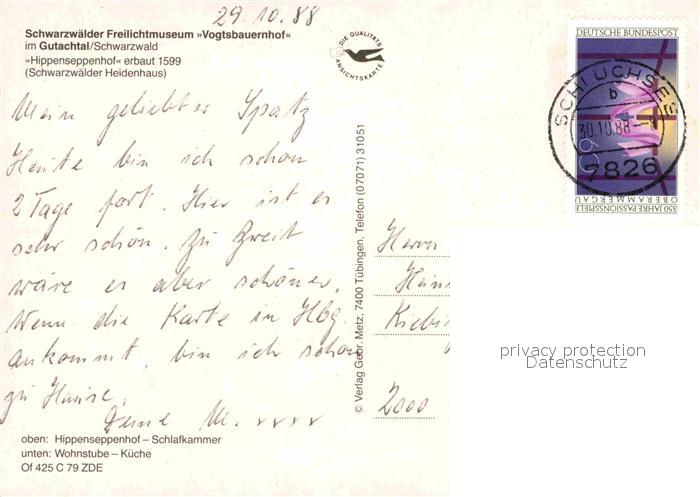 29.10.88
Schwarzwälder Freilichtmuseum »Vogtsbauernhof«
im Gutachtal/Schwarzwald
»Hippenseppenhof« erbaut 1599
(Schwarzwälder Heidenhaus)
DIE QUALITÄTS
ANSICHTSKARTE
DEUTSCHE BUNDESPOST
60
350 JAHRE PASSIONSSPIELE
OBERAMMERGAU
SCHLUCHSEE
b
30.10.88
7826
Mein geliebter Spatz
Heute bin ich schon
2 Tage fort. Hier ist es
sehr schön. Zu Zweit
wäre es aber schöner.
Wenn die Karte in Hbg.
ankommt, bin ich schon
zu Hause.
Deine M. xxxx
© Verlag Gebr. Metz, 7400 Tübingen, Telefon (07071) 31051
Herrn
Hein
Kiebi
2000
privacy protection
Datenschutz
oben: Hippenseppenhof – Schlafkammer
unten: Wohnstube – Küche
Of 425 C 79 ZDE